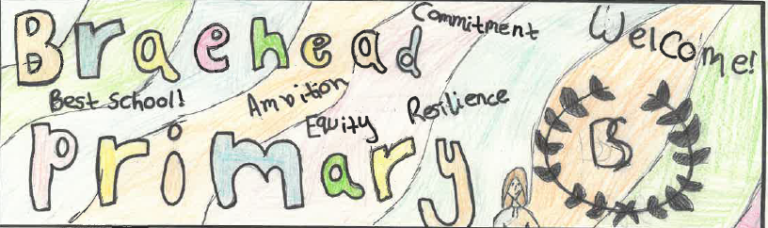 Braehead
Commitment
Welcome!
Best school!
Ambition
Equity
Resilience
Primary
B